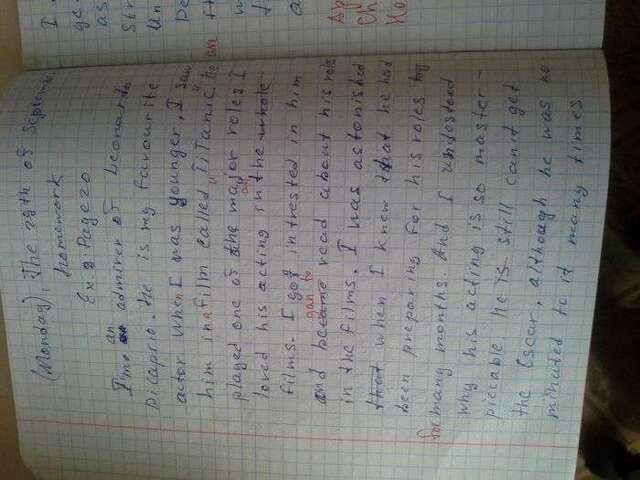 (Monday), The 29th of September.
homework
Ex 9. Page 20
I'm an admirer of Leonardo
Dicaprio. He is my favourite
actor when I was younger, I saw
him in a film called "TiTanic". he on
played one of the major roles. I
loved his acting in the whole
films. I got intrested in him
and became gan to read about his role
in the films. I was astonished
that when I knew that he had
been preparing for his roles by
for many months. And I undostend
why his acting is so master-
piecable he is still can't get
the Oscar, although he was no-
minated to it many times
I
ge
as
Str
Un
De
th
w
f
a
Ch
Ho